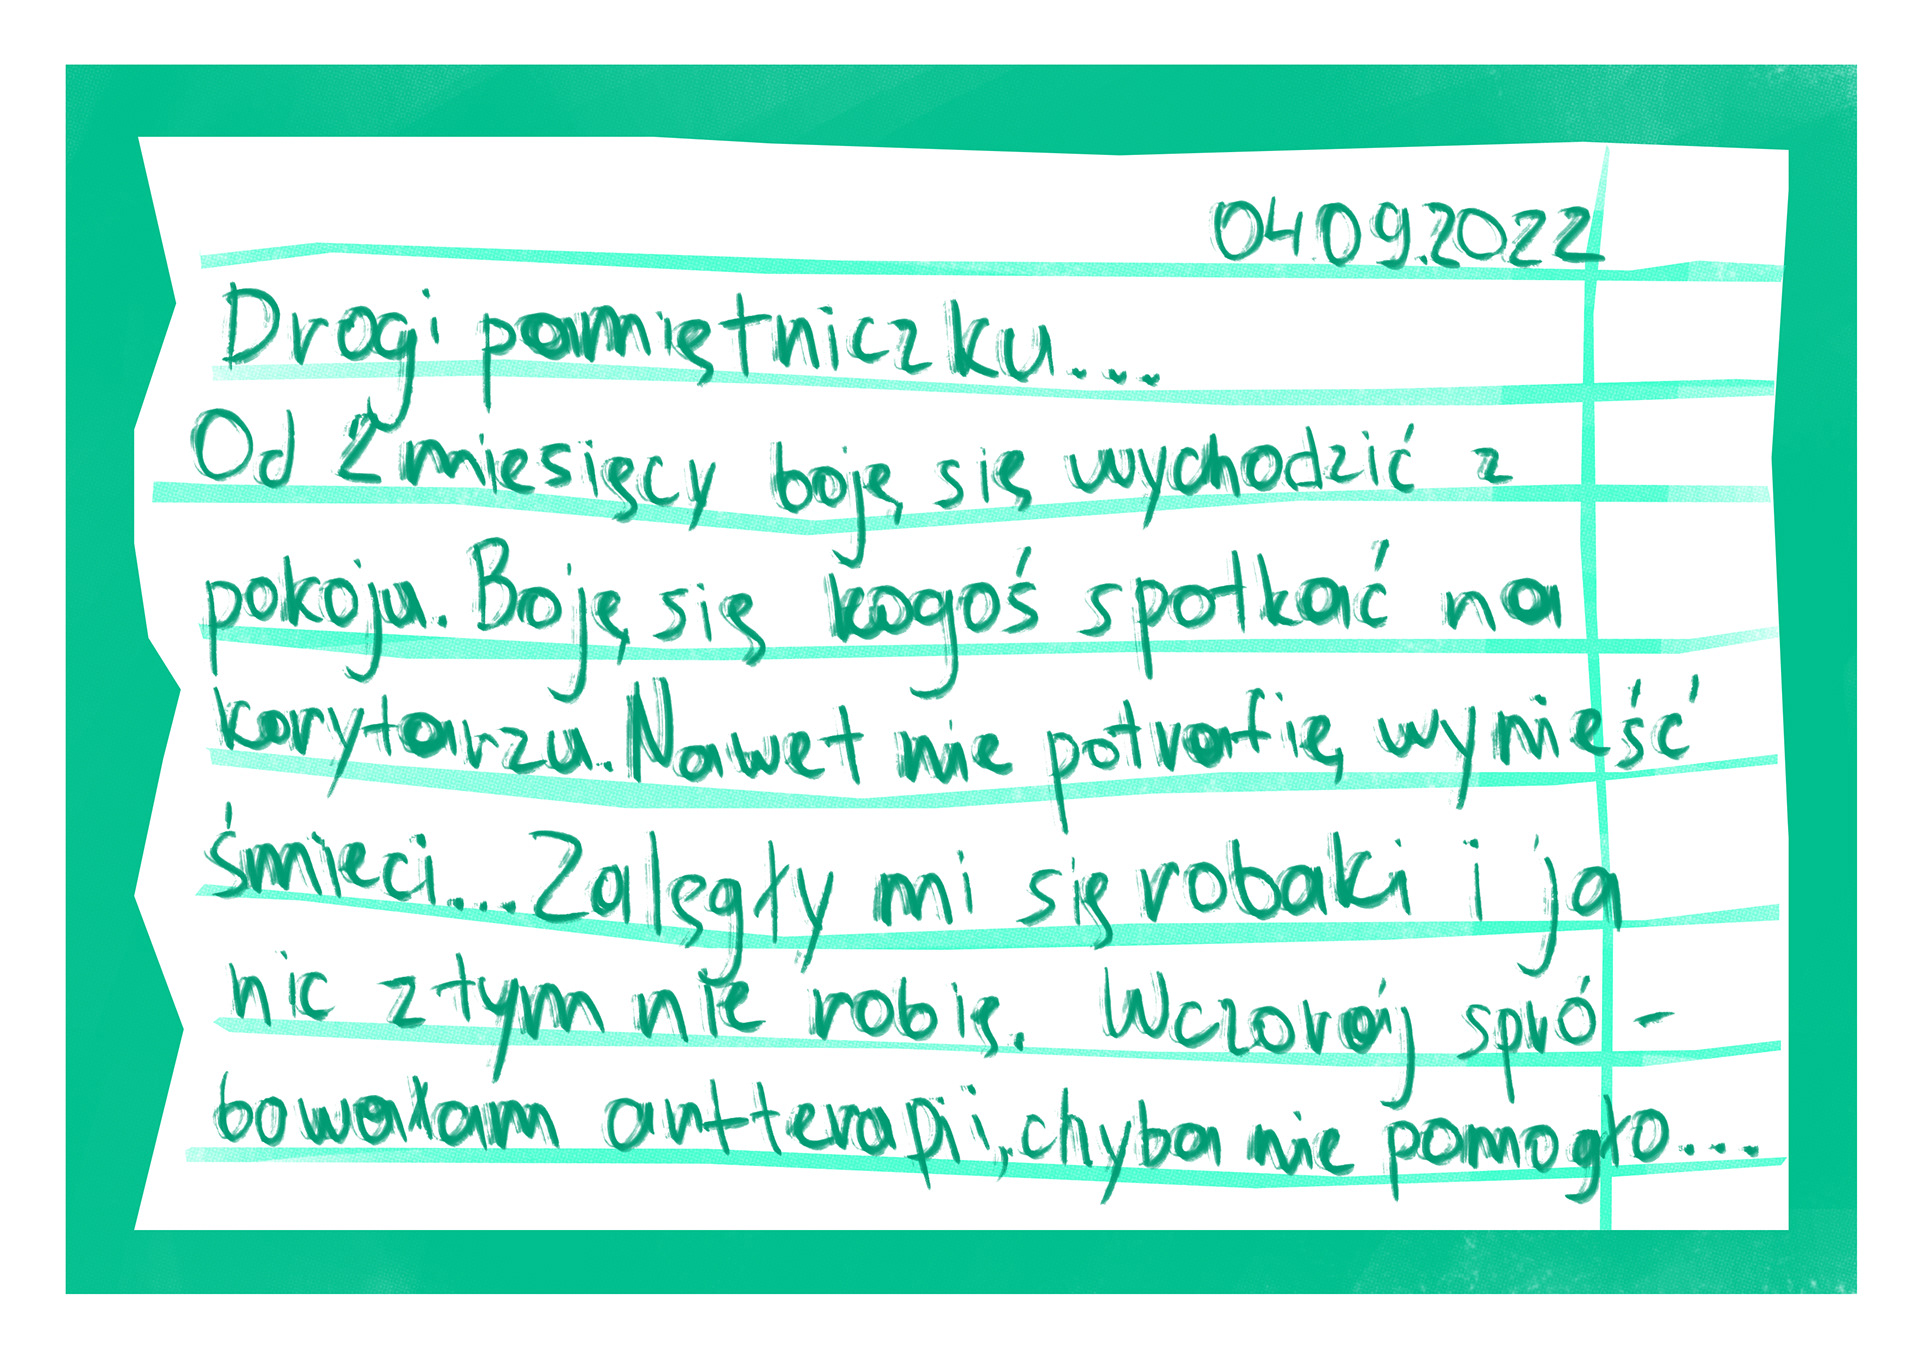 04.09.2022
Drogi pamiętniczku...
Od 2 miesięcy boję się wychodzić z
pokoju. Boję się kogoś spotkać na
korytarzu. Nawet nie potrafię wynieść
śmieci... Zalęgły mi się robaki i ja
nic z tym nie robię. Wczoraj spró-
bowałam artterapii, chyba nie pomogło...